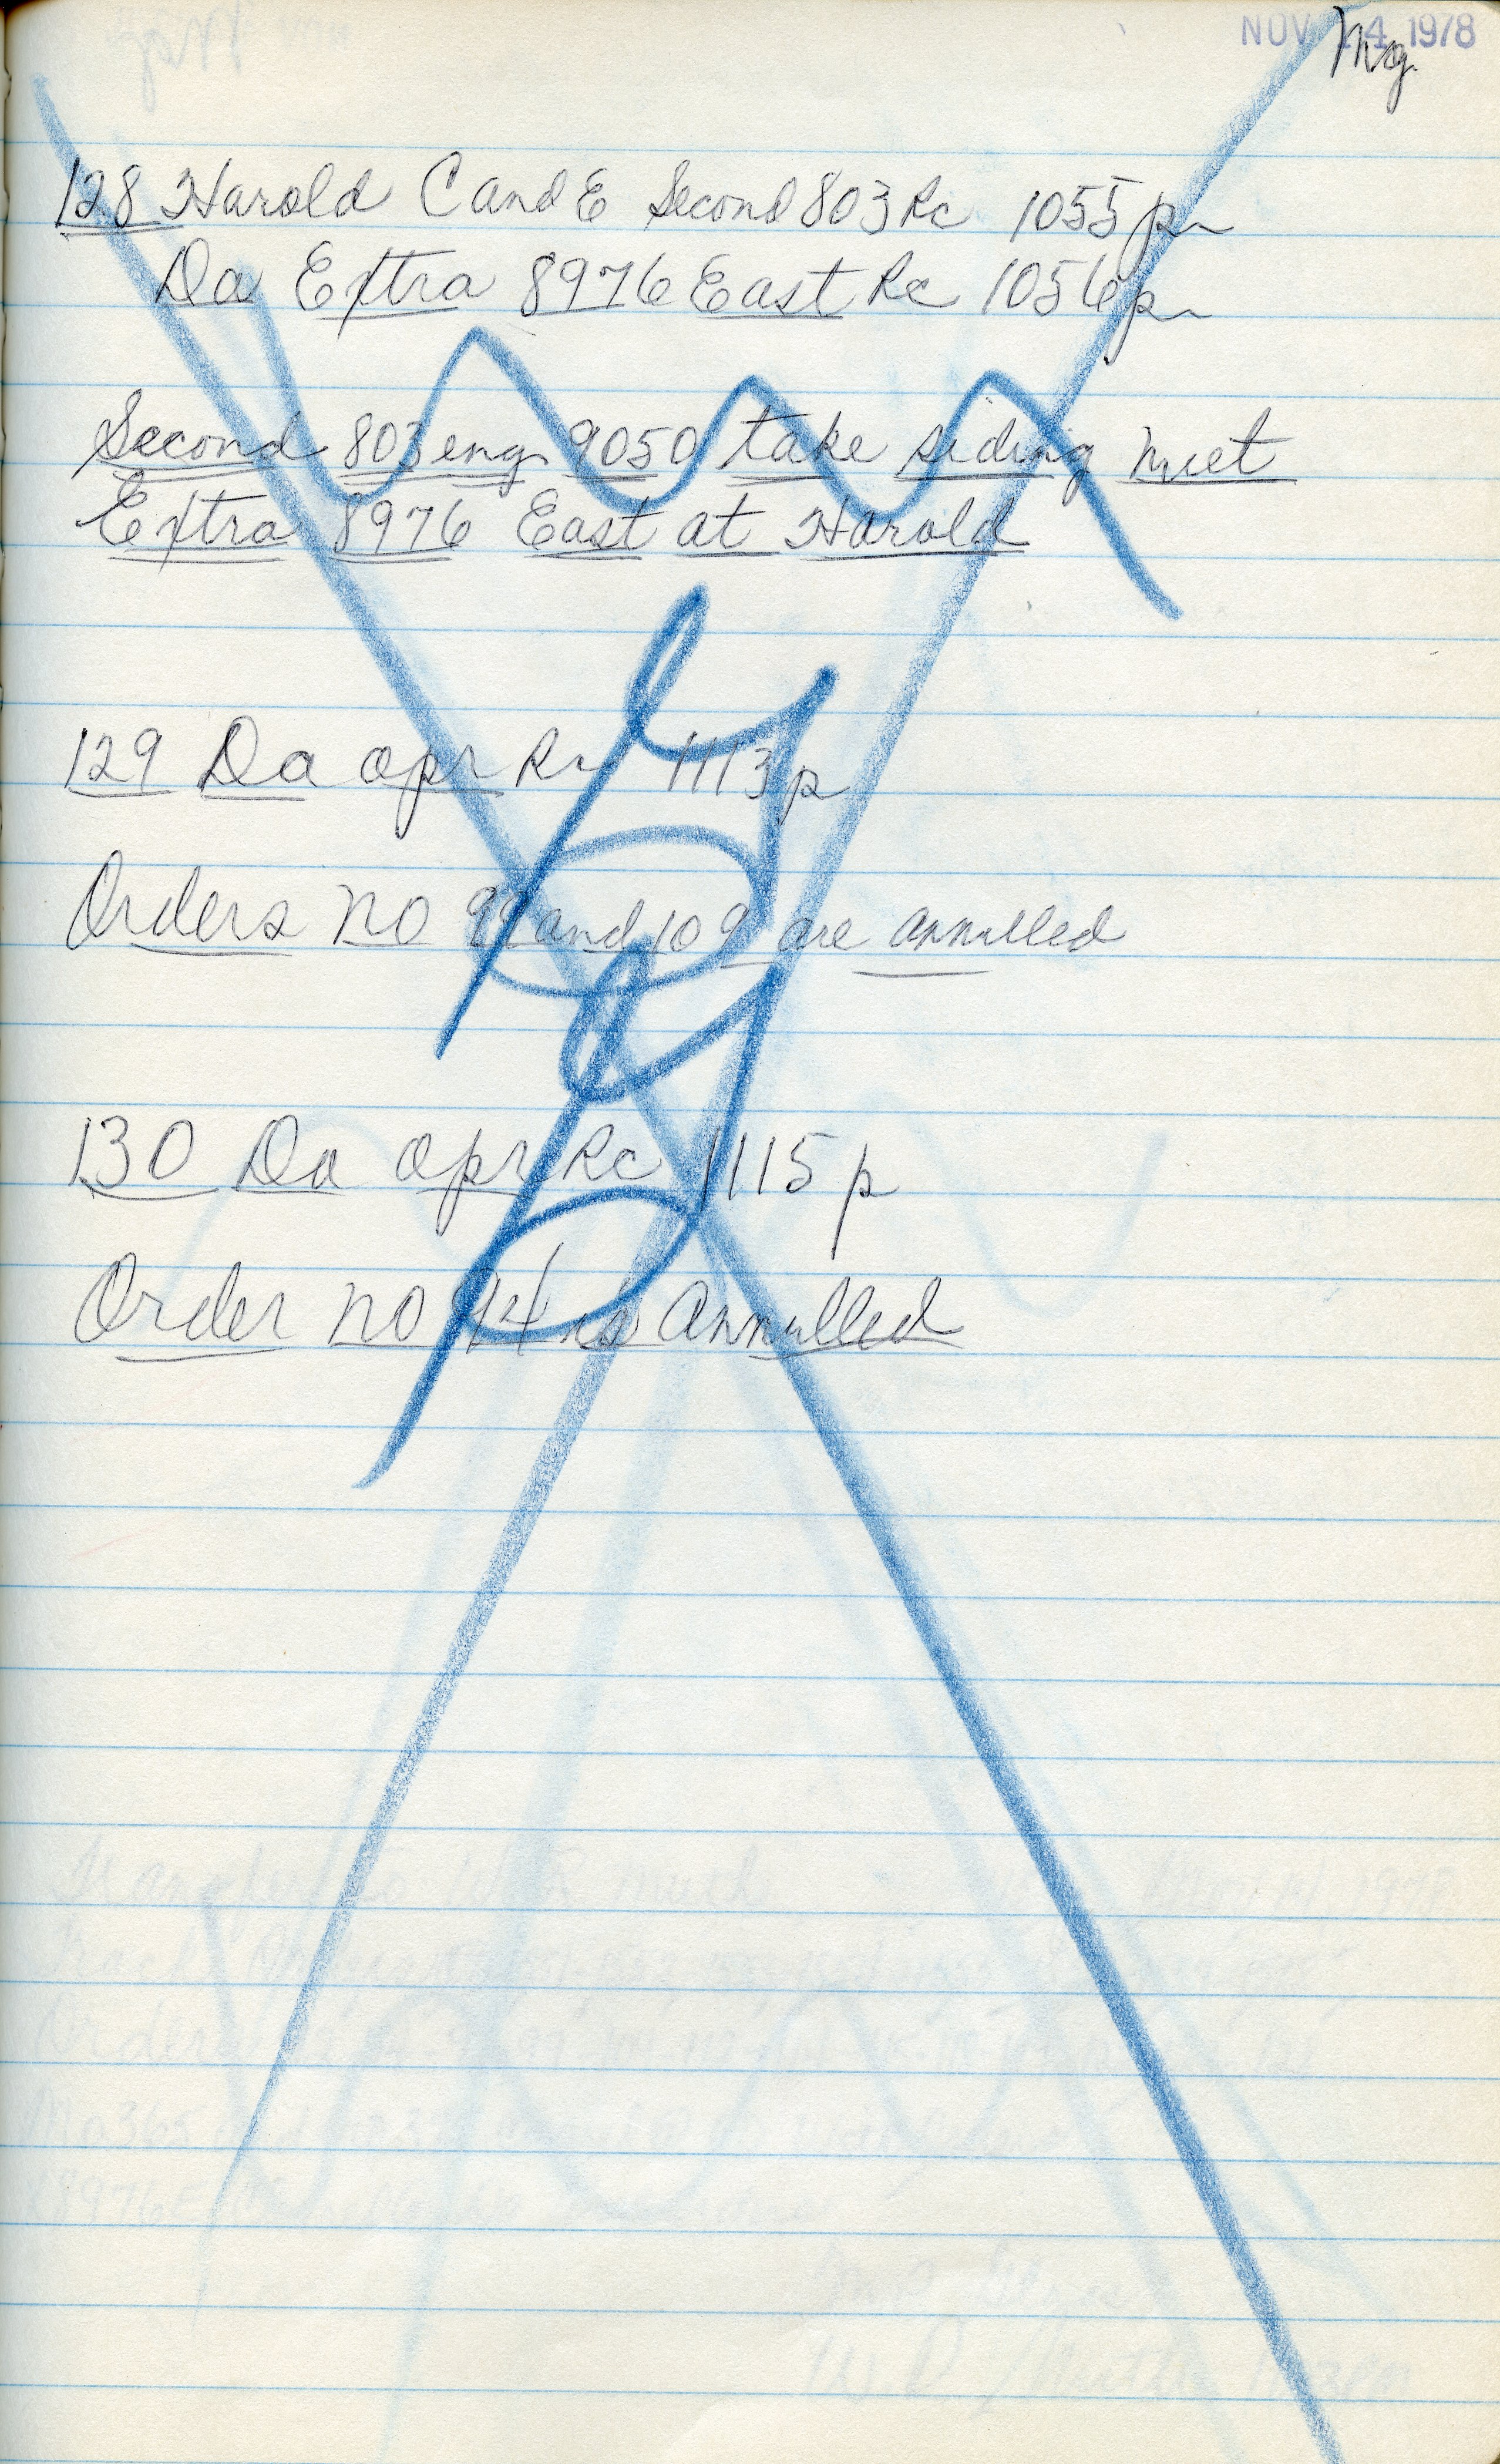 NOV 14 1978
128 Harold C and E Second 803 Rc 1055 p
Da Extra 8976 East Rc 1056 p
Second 803 eng 9050 take siding meet
Extra 8976 East at Harold
129 Da opr Rc 1113 p
Orders no 99 and 109 are annulled
130 Da opr Rc 1115 p
Order no 94 is Annulled